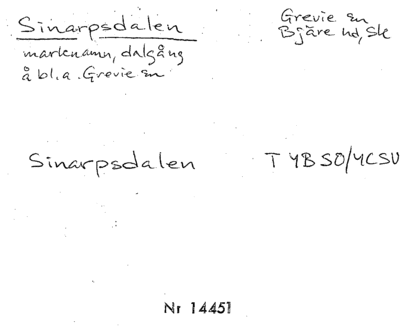 Sinarpsdalen
marknamn, dalgång
å bl.a. Grevie sn
Grevie sn
Bjäre hd, Sk
Sinarpsdalen
T 4B SO/4C SV
Nr 14451